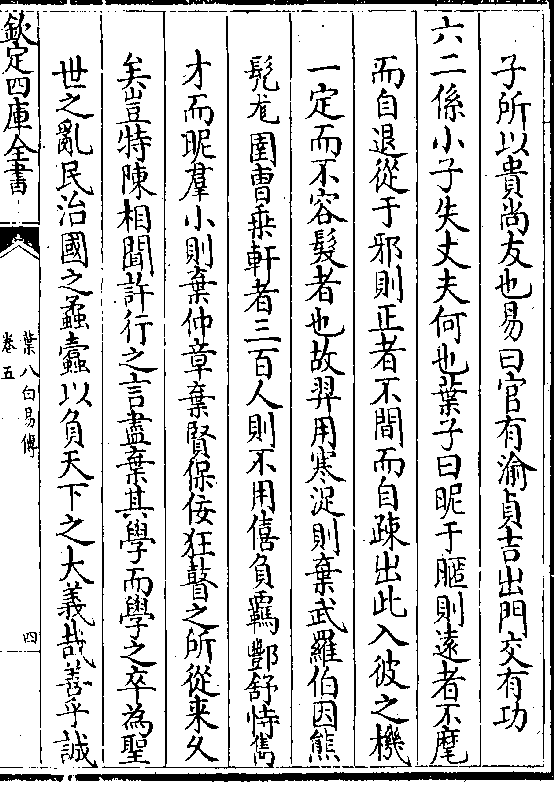 子所以貴尚友也易曰官有渝貞吉出門交有功
六二係小子失丈夫何也葉子曰昵于暱則遠者不麾
而自退從于邪則正者不間而自疎出此入彼之機
一定而不容髮者也故羿用寒浞則棄武羅伯因熊
髠尨圉曹乗軒者三百人則不用僖負覊酆舒恃雋
才而昵羣小則棄仲章棄賢保佞狂瞽之所從来久
矣豈特陳相聞許行之言盡棄其學而學之卒為聖
世之亂民治國之蟊蠧以負天下之大義哉善乎誠
欽定四庫全書
葉八白易傳
卷五
四